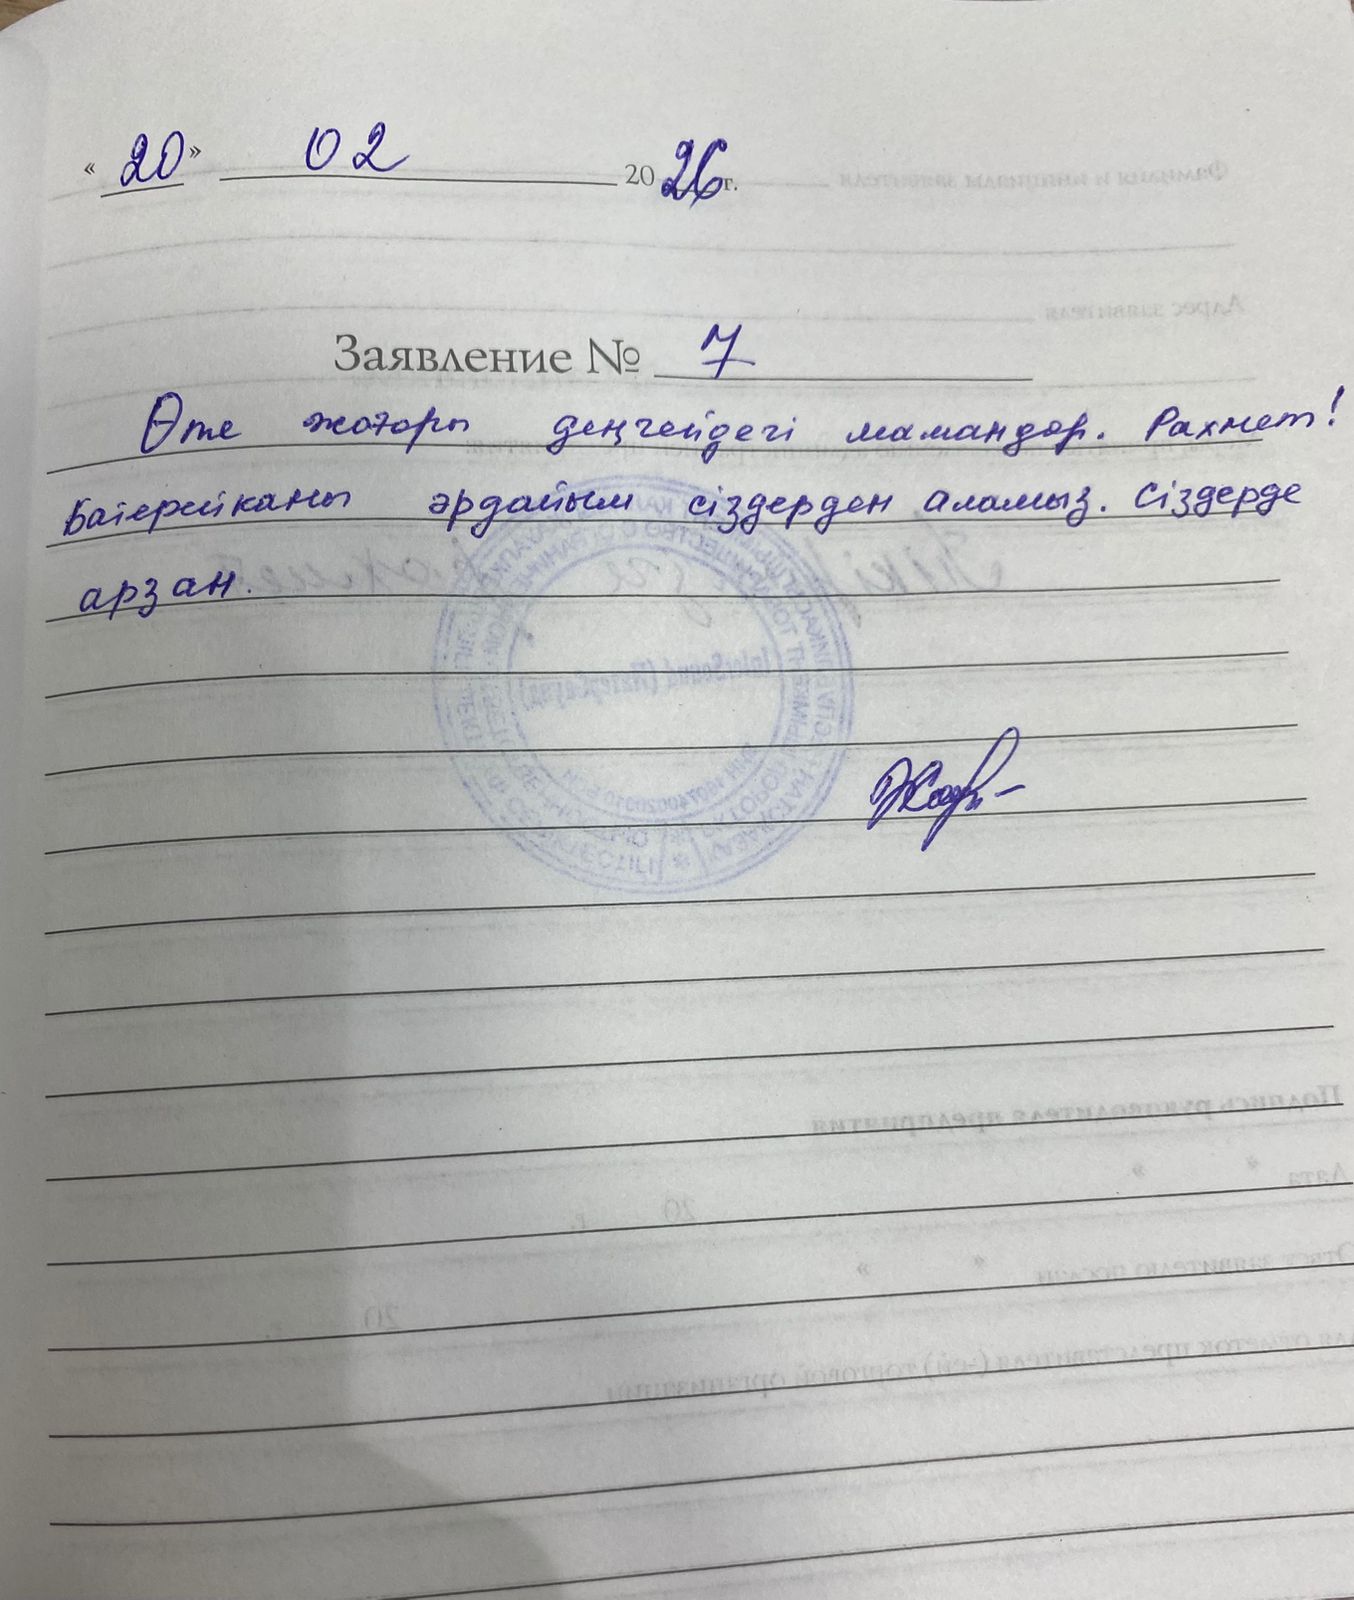 « 20 » 02 2026 г.
Заявление № 7
Өте жоғары деңгейдегі мамандар. Рахмет!
Батерейканы әрдайым сіздерден аламыз. Сіздерде
арзан.